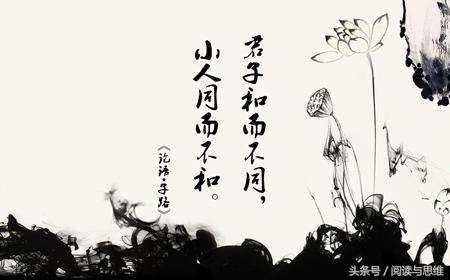 君子和而不同，
小人同而不和。
《论语·子路》
头条号 / 阅读与思维